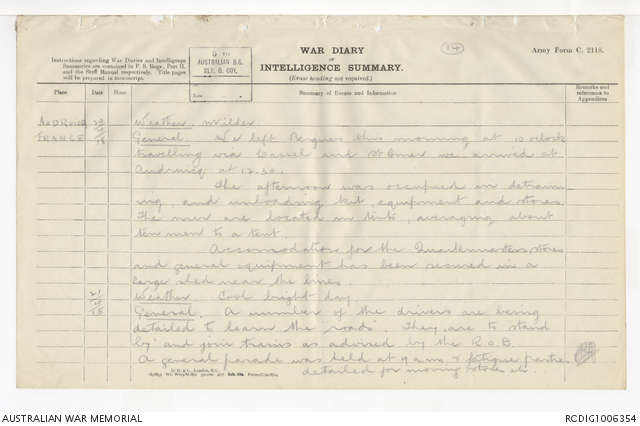 Instructions regarding War Diaries and Intelligence
Summaries are contained in F. S. Regs., Part II.
and the Staff Manual respectively. Title pages
will be prepared in manuscript.
AUSTRALIAN B.G.
RLY. O. COY.
WAR DIARY
or
INTELLIGENCE SUMMARY.
(Erase heading not required.)
14
Army Form C. 2118.
Place
Date
Hour
Summary of Events and Information
Remarks and
references to
Appendices
AUDRUICQ
FRANCE
Weather. Milder
General. We left Bergues this morning at 10 o'clock
travelling via Cassel and St Omer we arrived at
Audruicq at 12.30.
The afternoon was occupied in detrain-
ing, and unloading kit, equipment and stores.
The men are located in tents, averaging about
ten men to a tent.
Accomodation for the Quartermasters stores
and general equipment has been secured in a
large shed near the lines.
21
Weather. Cool bright day.
18
General. A number of the drivers are being
detailed to learn the "roads". They are to stand
by and join trains as advised by the R.O.D.
A general parade was held at 9 a.m. & fatigue parties
detailed for moving stores etc.
AUSTRALIAN WAR MEMORIAL
RCDIG1006354